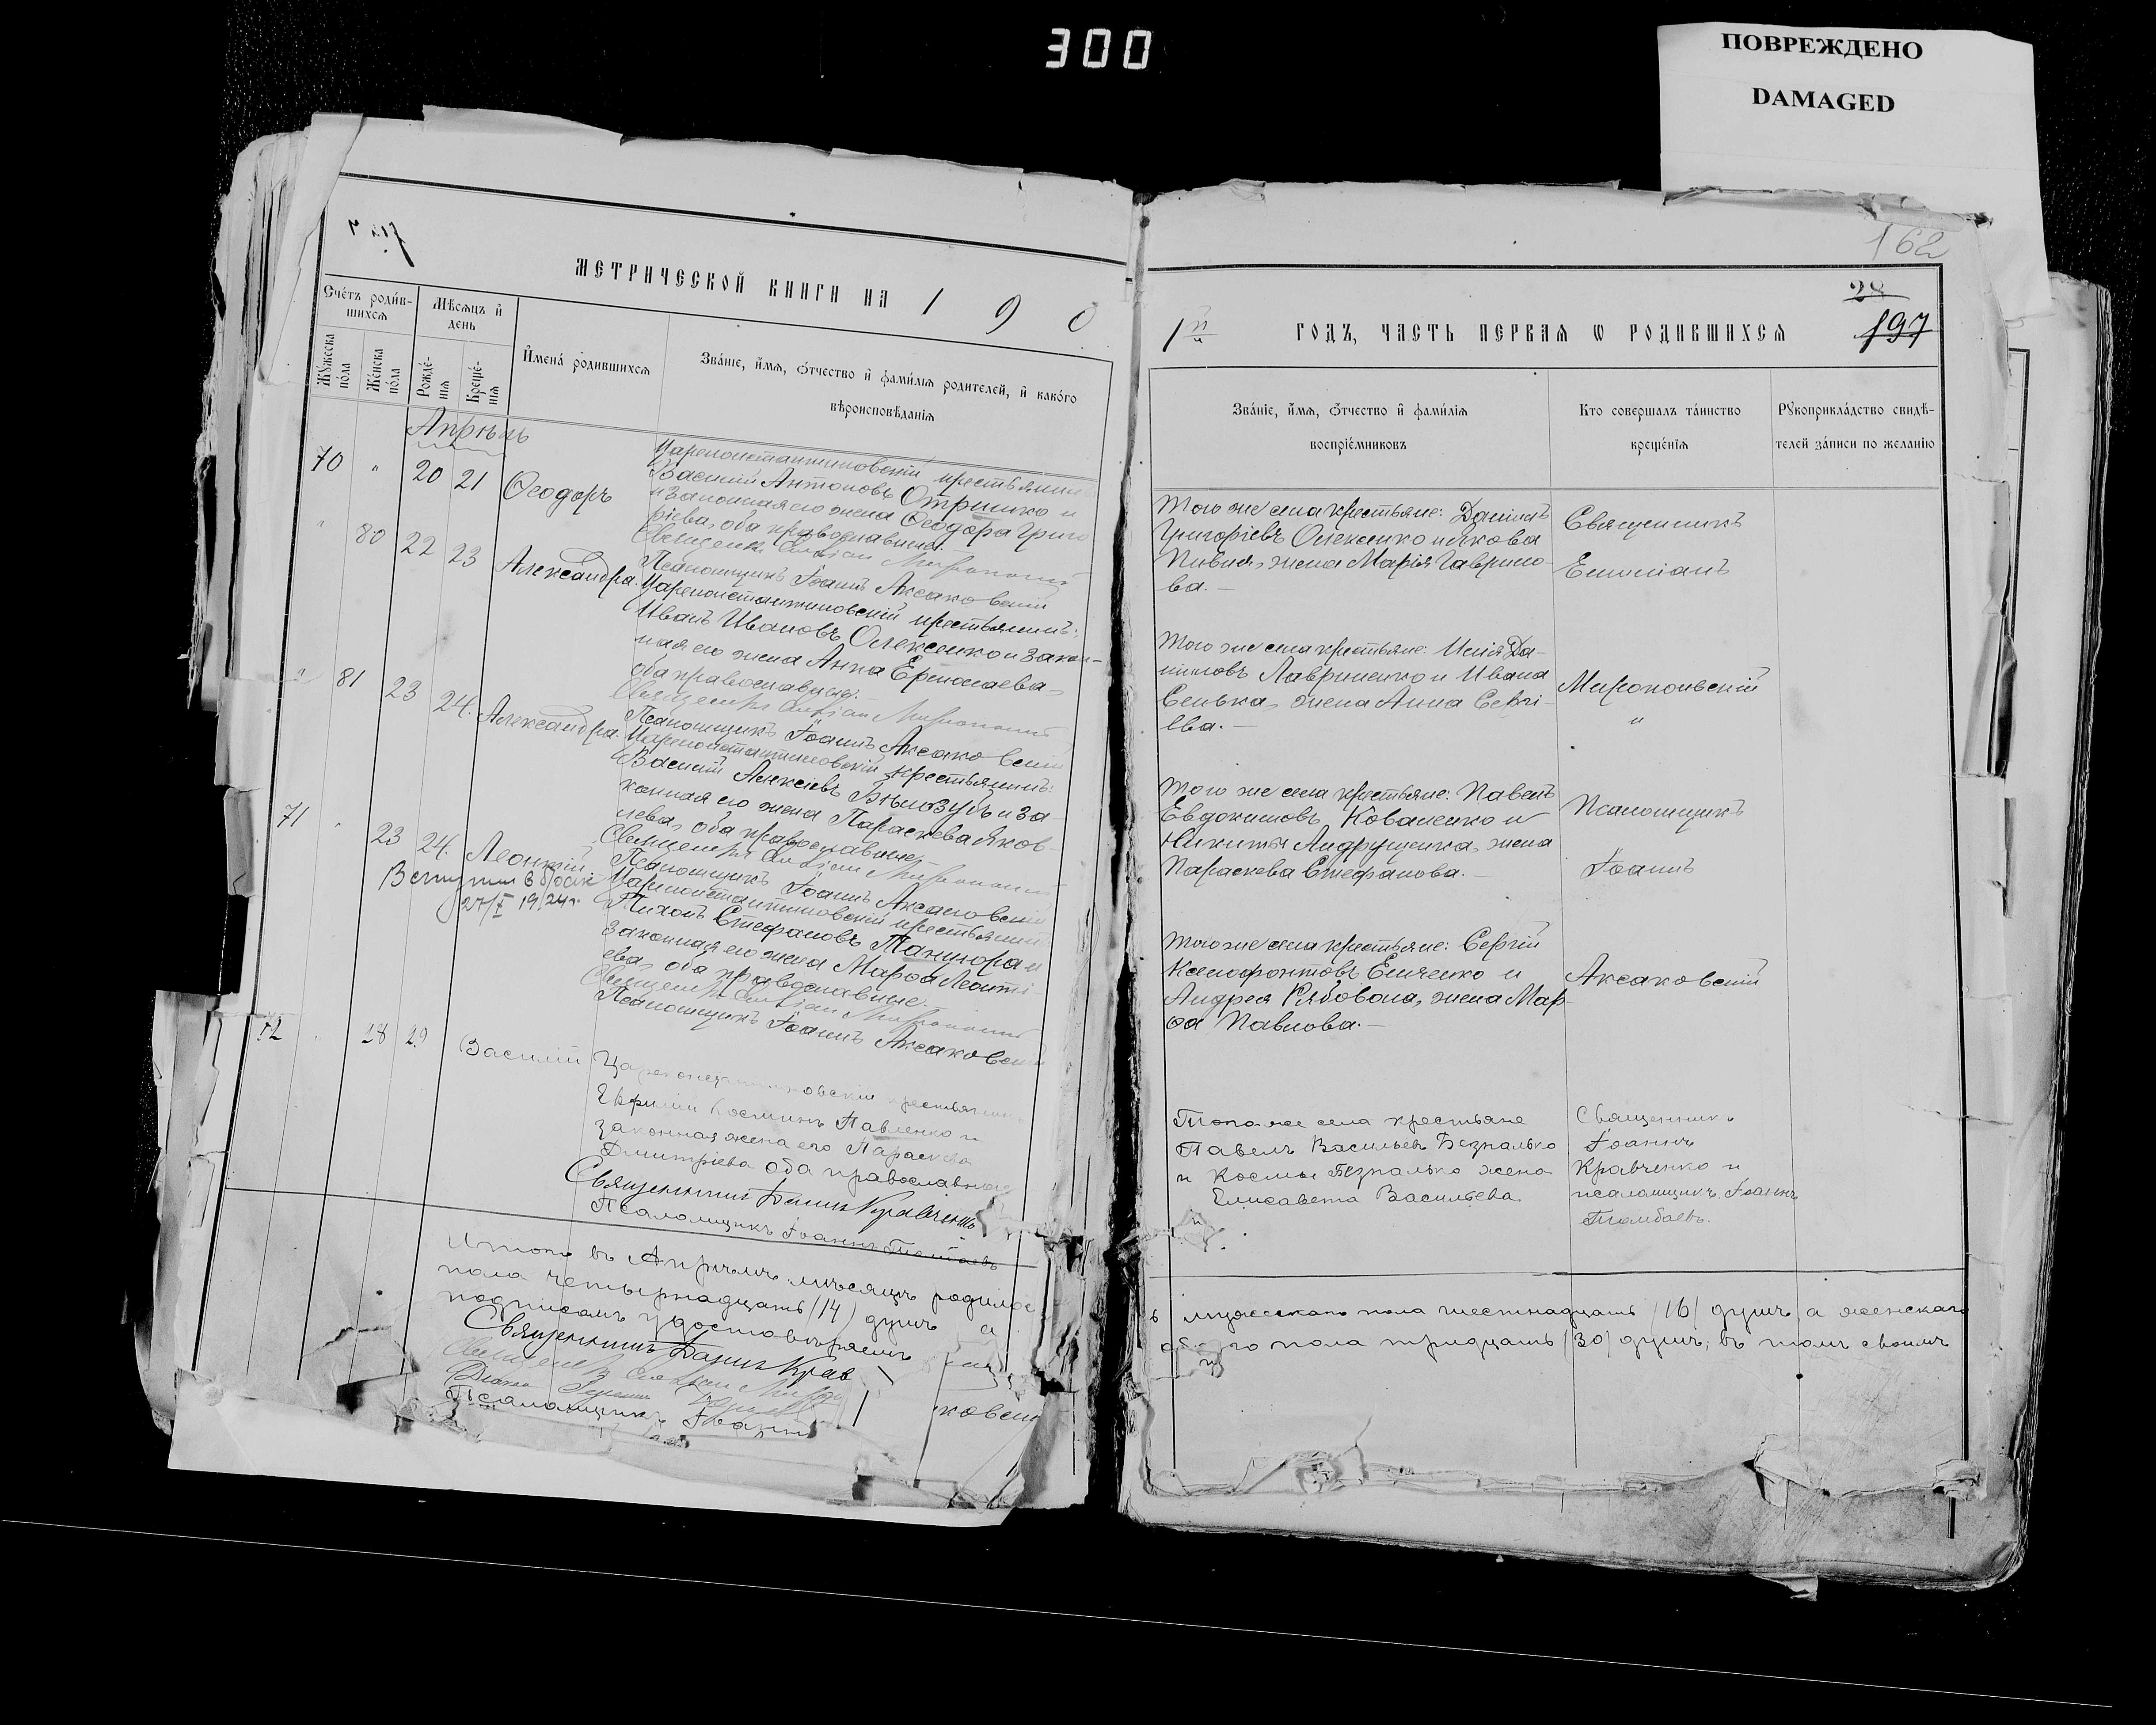 300
ПОВРЕЖДЕНО
DAMAGED
МЕТРИЧЕСКОЙ КНИГИ НА 190
Счетъ родив-
шихся
Мѣсяцъ и
день
Мужеска
пола
Женска
пола
Рожде-
нія
Креще-
нія
Имена родившихся
Званіе, имя, отчество и фамилія родителей, и какого
вѣроисповѣданія
Апрѣль
70 " 20 21 Ѳеодоръ
Цареконстантиновскій крестьянинъ
Василій Антоновъ Отришко и
законная его жена Ѳеодора Григо
рієва, оба православные.
Священникъ
Псаломщикъ Іоаннъ Аксаковскій
" 80 22 23 Александра.
Цареконстантиновскій крестьянинъ:
Иванъ Ивановъ Олексенко и закон-
ная его жена Анна Ермолаева,
оба православные.
Священникъ
Псаломщикъ Іоаннъ Аксаковскій
" 81 23 24. Александра.
Цареконстантиновскій крестьянинъ:
Василій Алексіевъ Бѣлозубъ и за
конная его жена Параскева Яков-
лева, оба православные.
Священникъ
Псаломщикъ Іоаннъ Аксаковскій
71 " 23 24. Леонтій
27/I 1924 г.
Цареконстантиновскій крестьянинъ
Тихонъ Стефановъ Танцюра и
законная его жена Марѳа Леонті-
ева, оба православные.
Священникъ
Псаломщикъ Іоаннъ Аксаковскій
72 28 29 Василій
Цареконстантиновскій крестьянинъ
Косминъ Павленко и
законная жена его Параскева
Дмитріева оба православные
Священникъ Іоаннъ Кравченко
Псаломщикъ Іоаннъ
Итого въ Апрѣлѣ мѣсяцѣ родилос
пола четырнадцать (14) душъ а
подписомъ удостовѣряемъ
Священникъ Іоаннъ Крав
Священникъ
Псаломщикъ Іоаннъ
ковскі
162
28
197
1й ГОДЪ, ЧАСТЬ ПЕРВАЯ Ѡ РОДИВШИХСЯ
Званіе, имя, отчество и фамилія
воспріемниковъ
Кто совершалъ таинство
крещенія
Рукоприкладство свидѣ-
телей записи по желанію
Того же села крестьяне: Даніилъ
Григоріевъ Олексенко и Якова
Пивня, жена Марія Гаврило-
ва.—
Священникъ
Емиліанъ
Того же села крестьяне: Илія Да-
ниловъ Лавриненко и Ивана
Сенька, жена Анна Сергі-
ева.—
Миропольскій
"
Того же села крестьяне: Павелъ
Евдокимовъ Коваленко и
Никиты Андрущенка, жена
Параскева Стефанова.—
Псаломщикъ
Іоаннъ
Того же села крестьяне: Сергій
Ксенофонтовъ Емченко и
Андрея Рябовола, жена Мар-
ѳа Павлова.—
Аксаковскій
Того же села крестьяне
Павелъ Васильевъ Безпалько
и Космы Безпалько жена
Елисавета Васильева
Священникъ
Іоаннъ
Кравченко и
псаломщикъ Іоаннъ
ь мужескаго пола шестнадцать (16) душъ а женскаго
обоего пола тридцать (30) душъ; въ томъ своимъ